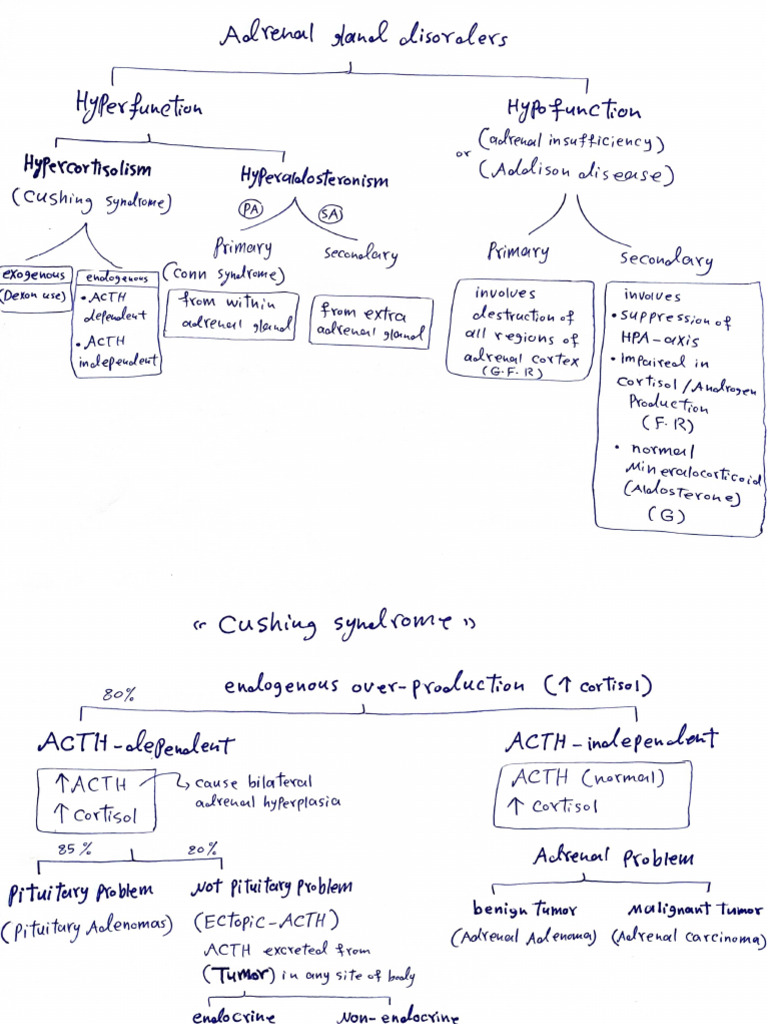 Adrenal gland disorders
Hyperfunction
Hypofunction
(adrenal insufficiency)
or (Addison disease)
Hypercortisolism
(Cushing syndrome)
Hyperaldosteronism
PA
SA
exogenous
(Dexon use)
endogenous
• ACTH
dependent
• ACTH
independent
Primary
(Conn syndrome)
from within
adrenal gland
secondary
from extra
adrenal gland
Primary
involves
destruction of
all regions of
adrenal cortex
(G.F.R)
secondary
involves
• suppression of
HPA-axis
• Impaired in
cortisol/Androgen
Production
(F.R)
• normal
Mineralocorticoid
(Aldosterone)
(G)
" Cushing syndrome "
endogenous over-production (↑ cortisol)
80%
ACTH-dependent
↑ ACTH
↑ cortisol
cause bilateral
adrenal hyperplasia
ACTH-independent
ACTH (normal)
↑ cortisol
85%
20%
Pituitary problem
(Pituitary Adenomas)
Not pituitary problem
(Ectopic-ACTH)
ACTH excreted from
(Tumor) in any site of body
endocrine
Non-endocrine
Adrenal problem
benign tumor
(Adrenal Adenoma)
Malignant tumor
(Adrenal carcinoma)